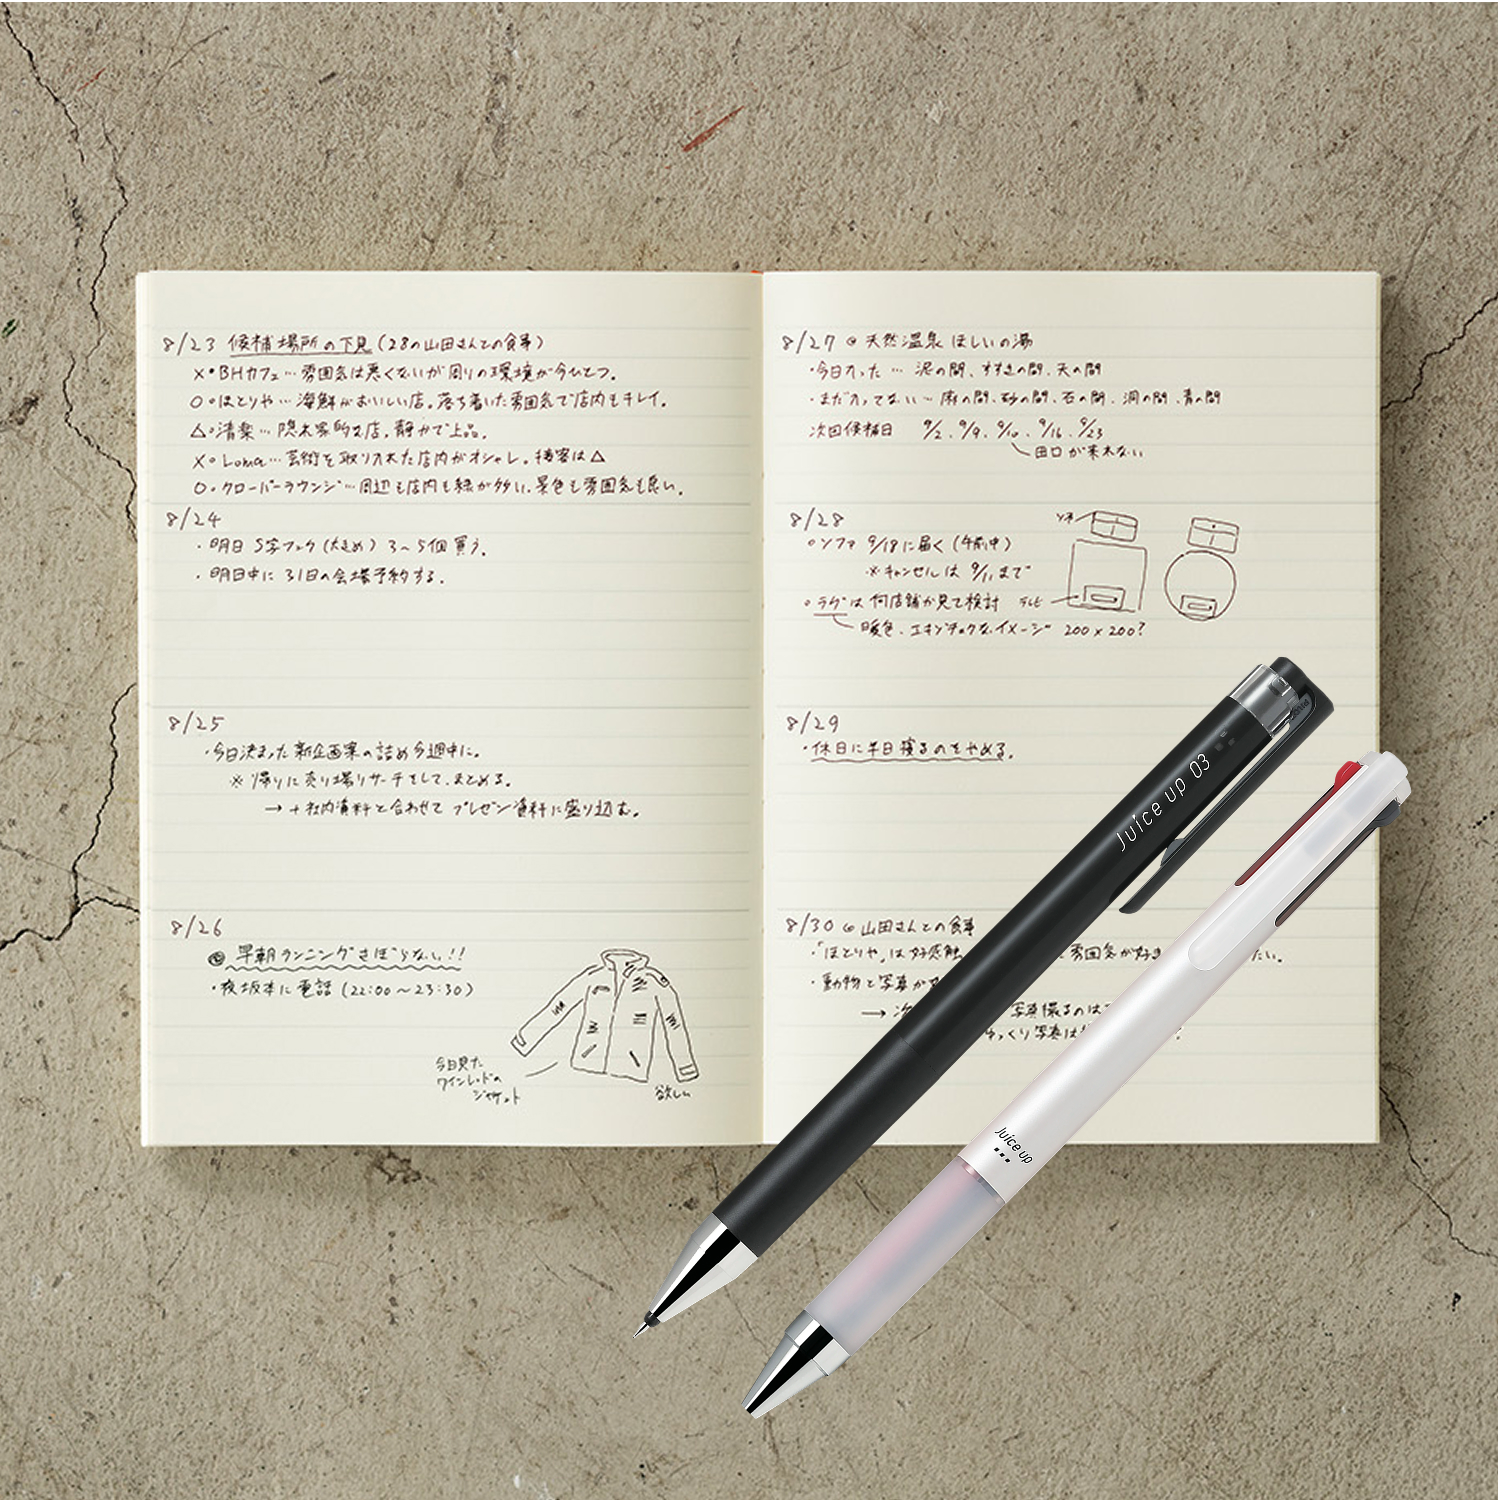 8/23 候補場所の下見(28の山田さんとの食事)
×・BHカフェ…雰囲気は悪くないが周りの環境が今ひとつ。
○・ほとりや…海鮮がおいしい店。落ち着いた雰囲気で店内もキレイ。
△・清楽…隠れ家的な店。静かで上品。
×・Loma…芸術を取り入れた店内がオシャレ。接客は△
○・クローバーラウンジ…周辺も店内も緑が多い。景色も雰囲気も良い。
8/24
・明日 S字フック(大きめ) 3〜5個買う。
・明日中に 31日の会場予約する。
8/25
・今日決まった新企画案の詰め今週中に。
※帰りに売り場リサーチをして、まとめる。
→+社内資料と合わせて プレゼン資料に盛り込む。
8/26
早朝ランニングさぼらない!!
・夜坂本に電話(22:00〜23:30)
今日見た
ワインレッドの
ジャケット
欲しい
8/27 @ 天然温泉 ほしいの湯
・今日入った … 泥の間、すすきの間、天の間
・まだ入ってない… 麻の間、砂の間、石の間、洞の間、青の間
次回候補日 9/2、9/9、9/10、9/16、9/23
田口が来れない
8/28
ソファ 9/18に届く(午前中)
※キャンセルは 9/11まで
ラグは何店舗か見て検討
テレビ
暖色、エキゾチックなイメージ 200×200?
8/29
・休日に半日寝るのをやめる。
8/30 @ 山田さんとの食事
・「ほとりや」は好感触
雰囲気が好き
たい。
・動物と写真が
→ 次
写真撮るのは
ゆっくり写真は
Juice up 03
Juice up